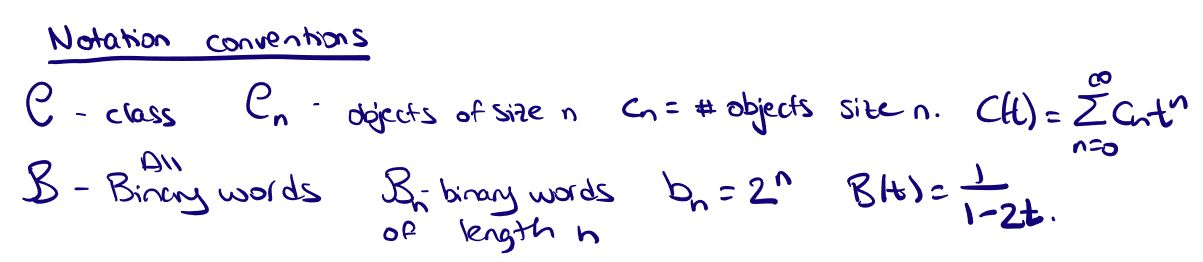 Notation conventions
𝒞 - class 𝒞ₙ - objects of size n cₙ = # objects size n. C(t) = ∑_{n=0}^{∞} cₙtⁿ
ℬ - All Binary words ℬₙ - binary words of length n bₙ = 2ⁿ B(t) = 1/(1-2t).